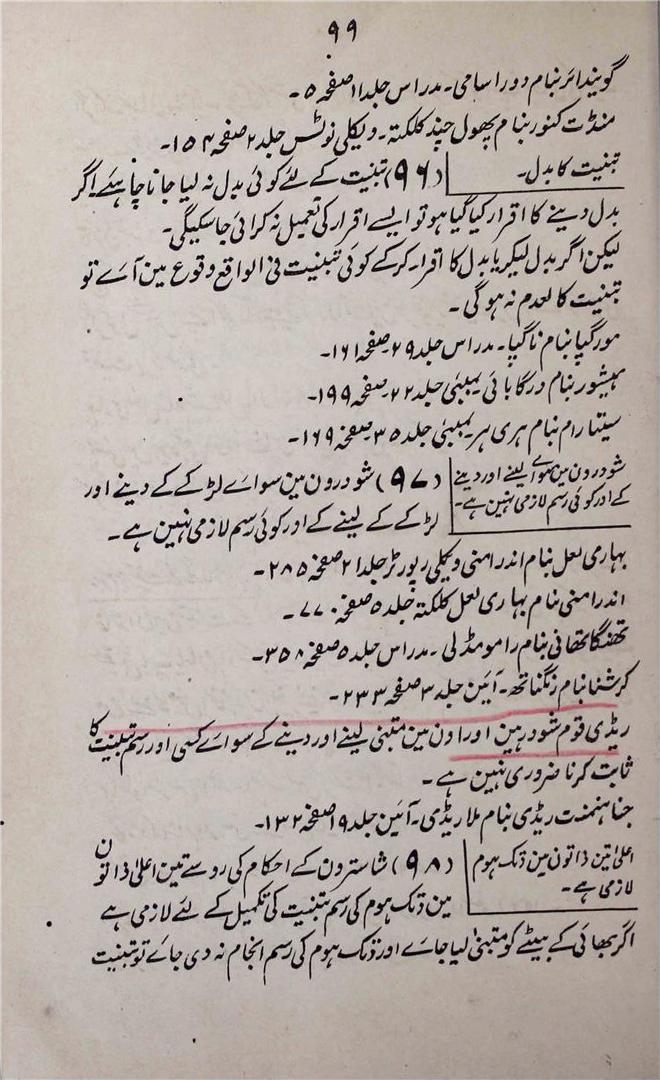 ۹۹
گوینداٸر بنام دوراسامی۔ مدراس جلد ۱۱ صفحہ ۵۔
منڈت کنور بنام پھول چند کلکتہ۔ ویکلی نوٹس جلد ۲ صفحہ ۱۵۴۔
تبنیت کا بدل۔
(۹۶) تبنیت کے لئے کوئی بدل نہ لیا جانا چاہئے اگر
بدل دینے کا اقرار کیا گیا ہو تو ایسے اقرار کی تعمیل نہ کرائی جا سکیگی۔
لیکن اگر بدل لیکر یا بدل کا اقرار کر کے کوئی تبنیت فی الواقع وقوع مین آے تو
تبنیت کالعدم نہ ہو گی۔
مورگپا بنام ناگپا۔ مدراس جلد ۲۹ صفحہ ۱۶۱۔
ہیشور بنام درگا بائی بمبئی جلد ۲۲ صفحہ ۱۹۹۔
سیتارام بنام ہری ہر بمبئی جلد ۳۵ صفحہ ۱۶۹۔
شودرون مین سواے لینے اور دینے
کے اور کوئی رسم لازمی نہین ہے۔
(۹۷) شودرون مین سواے لڑکے کے دینے اور
لڑکے کے لینے کے اور کوئی رسم لازمی نہین ہے۔
بہاری لعل بنام اندرامنی ویکلی رپورٹر جلد ۲۱ صفحہ ۲۸۵۔
اندرامنی بنام بہاری لعل کلکتہ جلد ۵ صفحہ ۷۷۰۔
تھنگاتھانی بنام رامو مڈلی۔ مدراس جلد ۵ صفحہ ۳۵۸۔
کرشنا بنام رنگناتھ۔ آئین جلد ۳ صفحہ ۲۳۳۔
ریڈی قوم شودر ہین اور اون مین متبنی لینے اور دینے کے سواے کسی اور رسم تبنیت کا
ثابت کرنا ضروری نہین ہے۔
جناہنمنت ریڈی بنام ملا ریڈی۔ آئین جلد ۱۹ صفحہ ۱۳۲۔
اعلیٰ تین ذاتون مین دتک ہوم
لازمی ہے۔
(۹۸) شاسترون کے احکام کی رو سے تین اعلیٰ ذاتون
مین دتک ہوم کی رسم تبنیت کی تکمیل کے لئے لازمی ہے
اگر بھائی کے بیٹے کو متبنیٰ لیا جاے اور دتک ہوم کی رسم انجام نہ دی جاے تو تبنیت